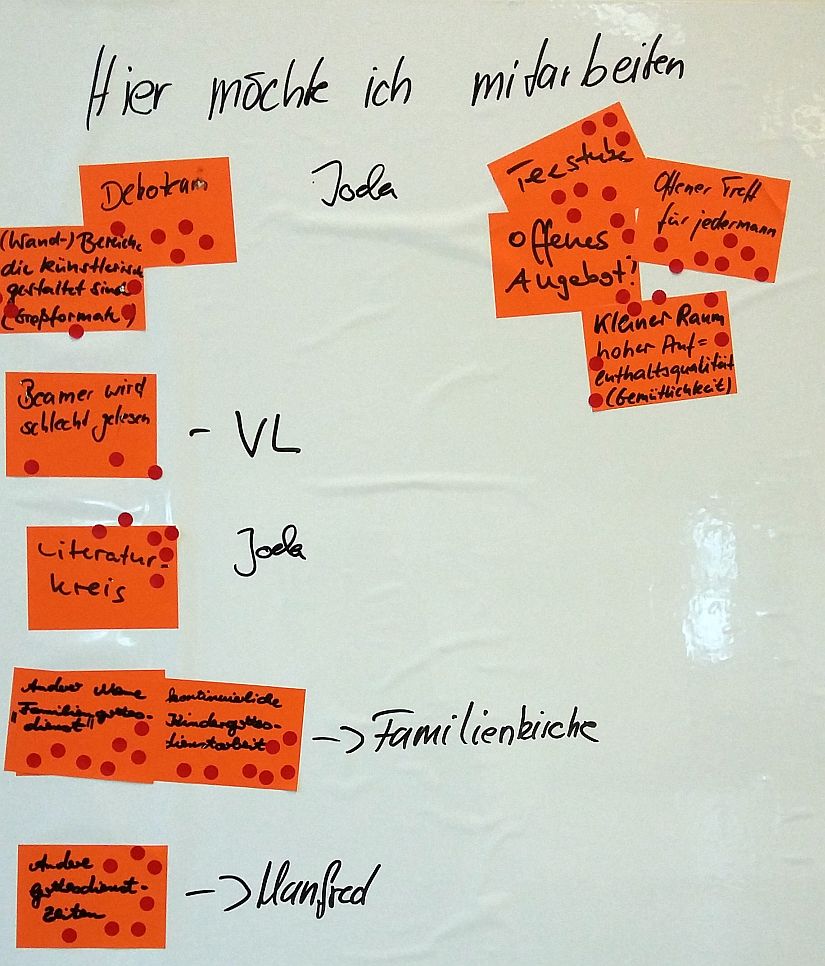 Hier möchte ich mitarbeiten
Dekoteam
Joda
(Wand-) Bereiche
die künstlerisch
gestaltet sind
(Großformat)
Teestube
Offener Treff
für jedermann
Offenes
Angebot!
Kleiner Raum
hoher Auf=
enthaltsqualität
(Gemütlichkeit)
Beamer wird
schlecht gelesen
- VL
Literatur-
kreis
Joda
Anderer Name
"Familiengottes-
dienst"
kontinuierliche
Kindergottes-
dienstarbeit
-> Familienkirche
Andere
gottesdienst-
zeiten
-> Manfred